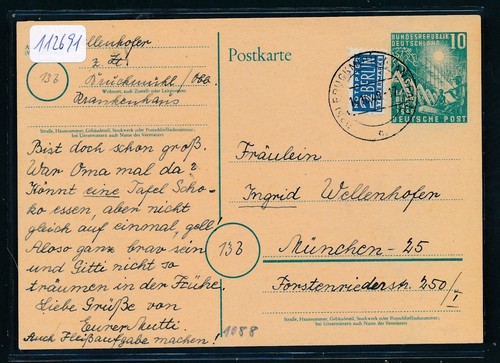 112691
Wellenhofer
z. Zt.
Bruckmühl / Obb.
Krankenhaus
Wohnort, auch Zustell- oder Leitpostamt
13b
Straße, Hausnummer, Gebäudeteil, Stockwerk oder Postschließfachnummer;
bei Untermietern auch Name des Vermieters
Bist doch schon groß.
War Oma mal da?
Könnt eine Tafel Scho-
ko essen, aber nicht
gleich auf einmal, gell!
Aloso ganz brav sein
und Gitti nicht so
träumen in der Frühe.
Liebe Grüße von
Eurer Mutti.
Auch Fleißaufgabe machen!
Postkarte
BERLIN
BUNDESREPUBLIK
DEUTSCHLAND
10
DEUTSCHE POST
Fräulein
Ingrid Wellenhofer
13b
München - 25
Forstenriederstr. 250/I
Straße, Hausnummer, Gebäudeteil, Stockwerk oder Postschließfachnummer;
bei Untermietern auch Name des Vermieters
1088